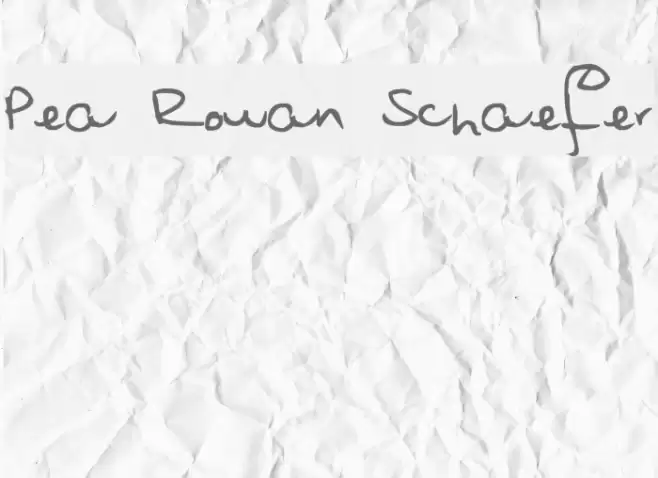 Pea Rowan Schaefer